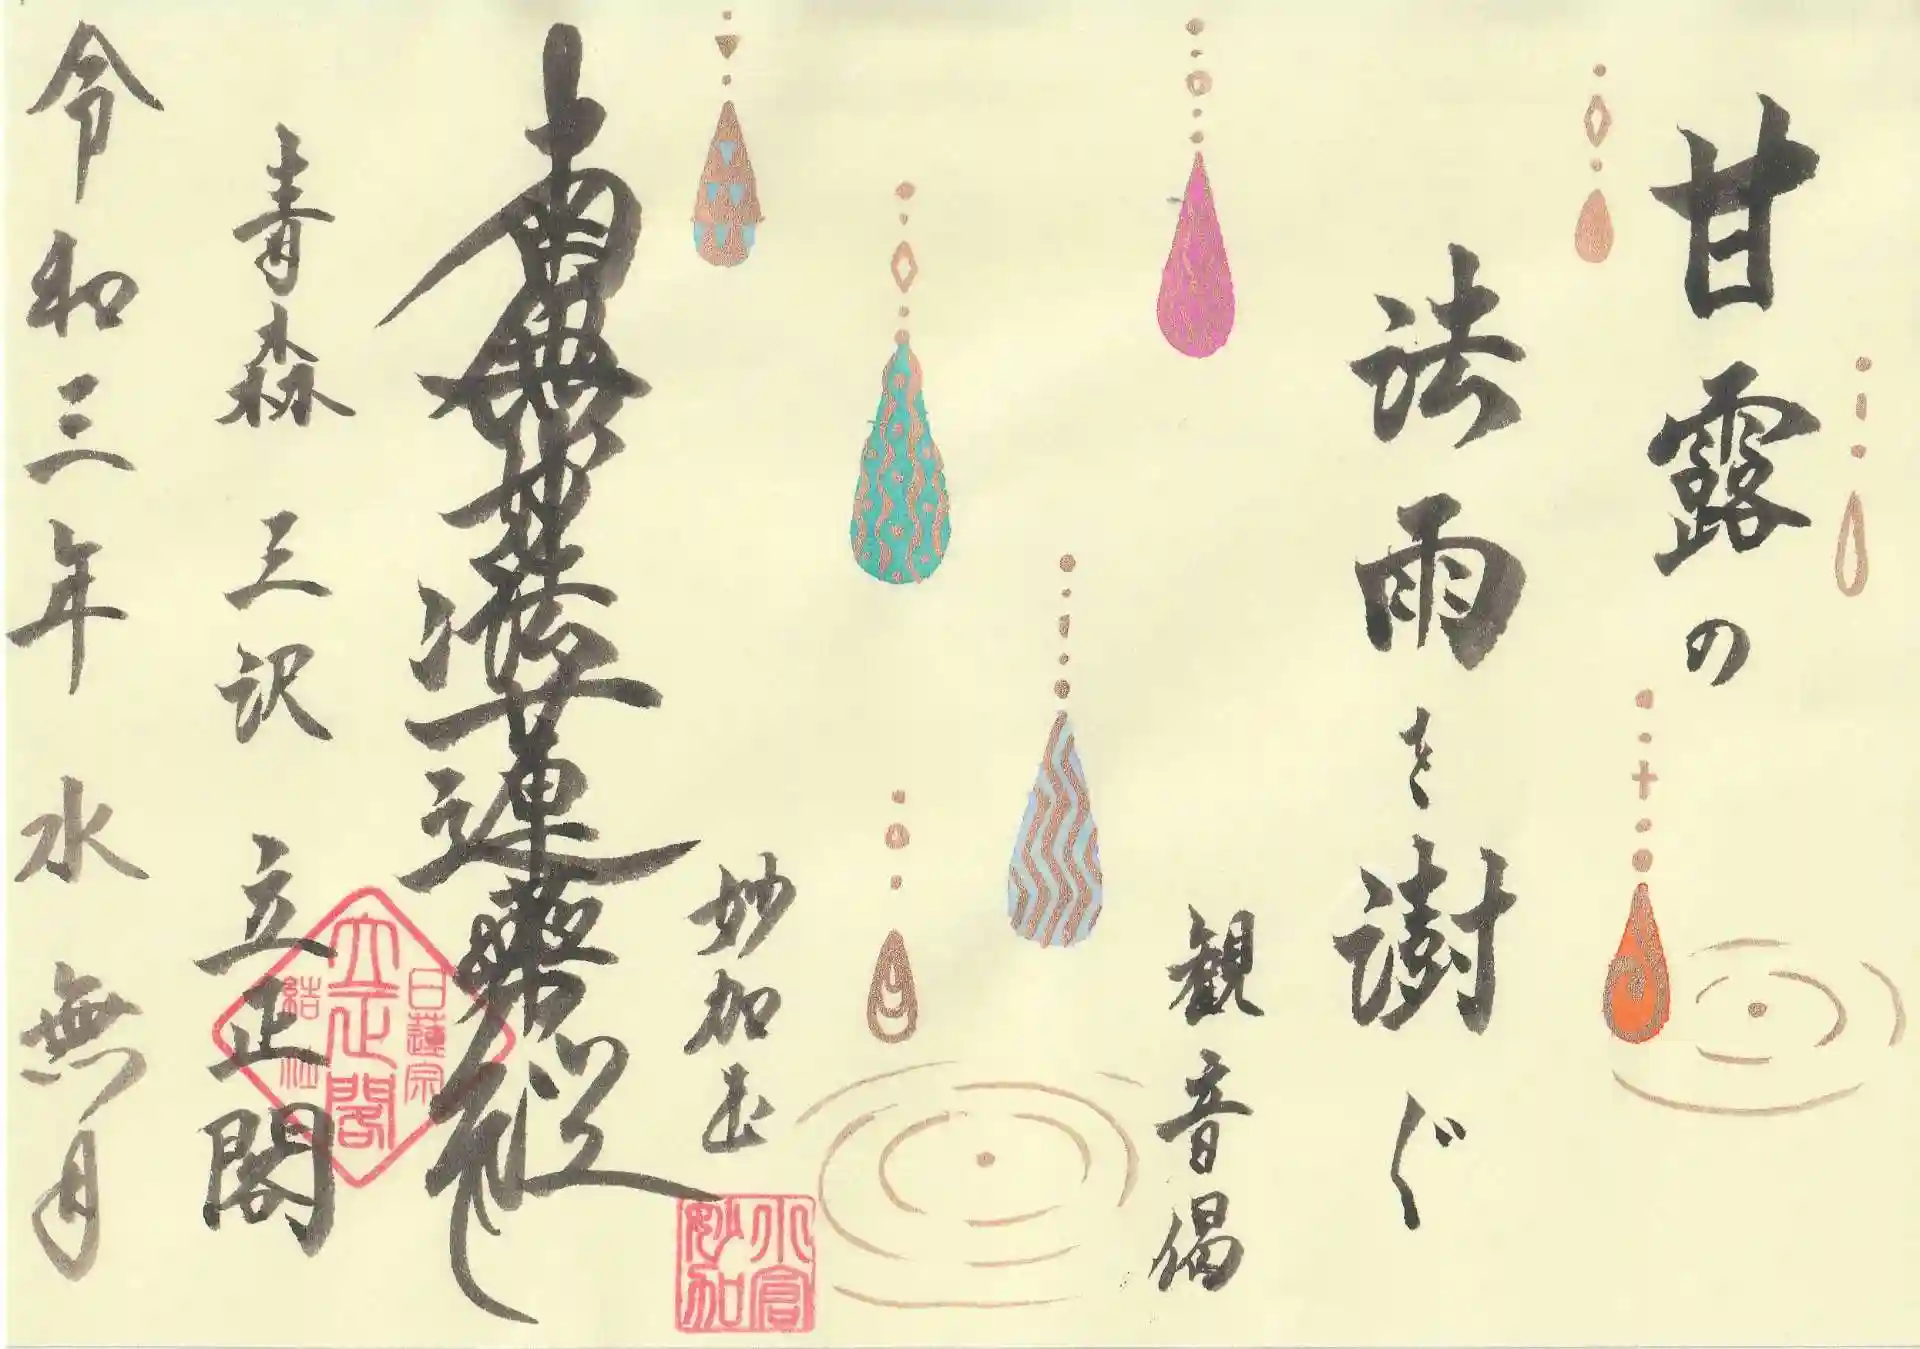 甘露の
法雨を澍ぐ
観音偈
妙加書
小倉
妙加
南無妙法蓮華経
青森 三沢 立正閣
日蓮宗
立正閣
結社
令和三年 水無月